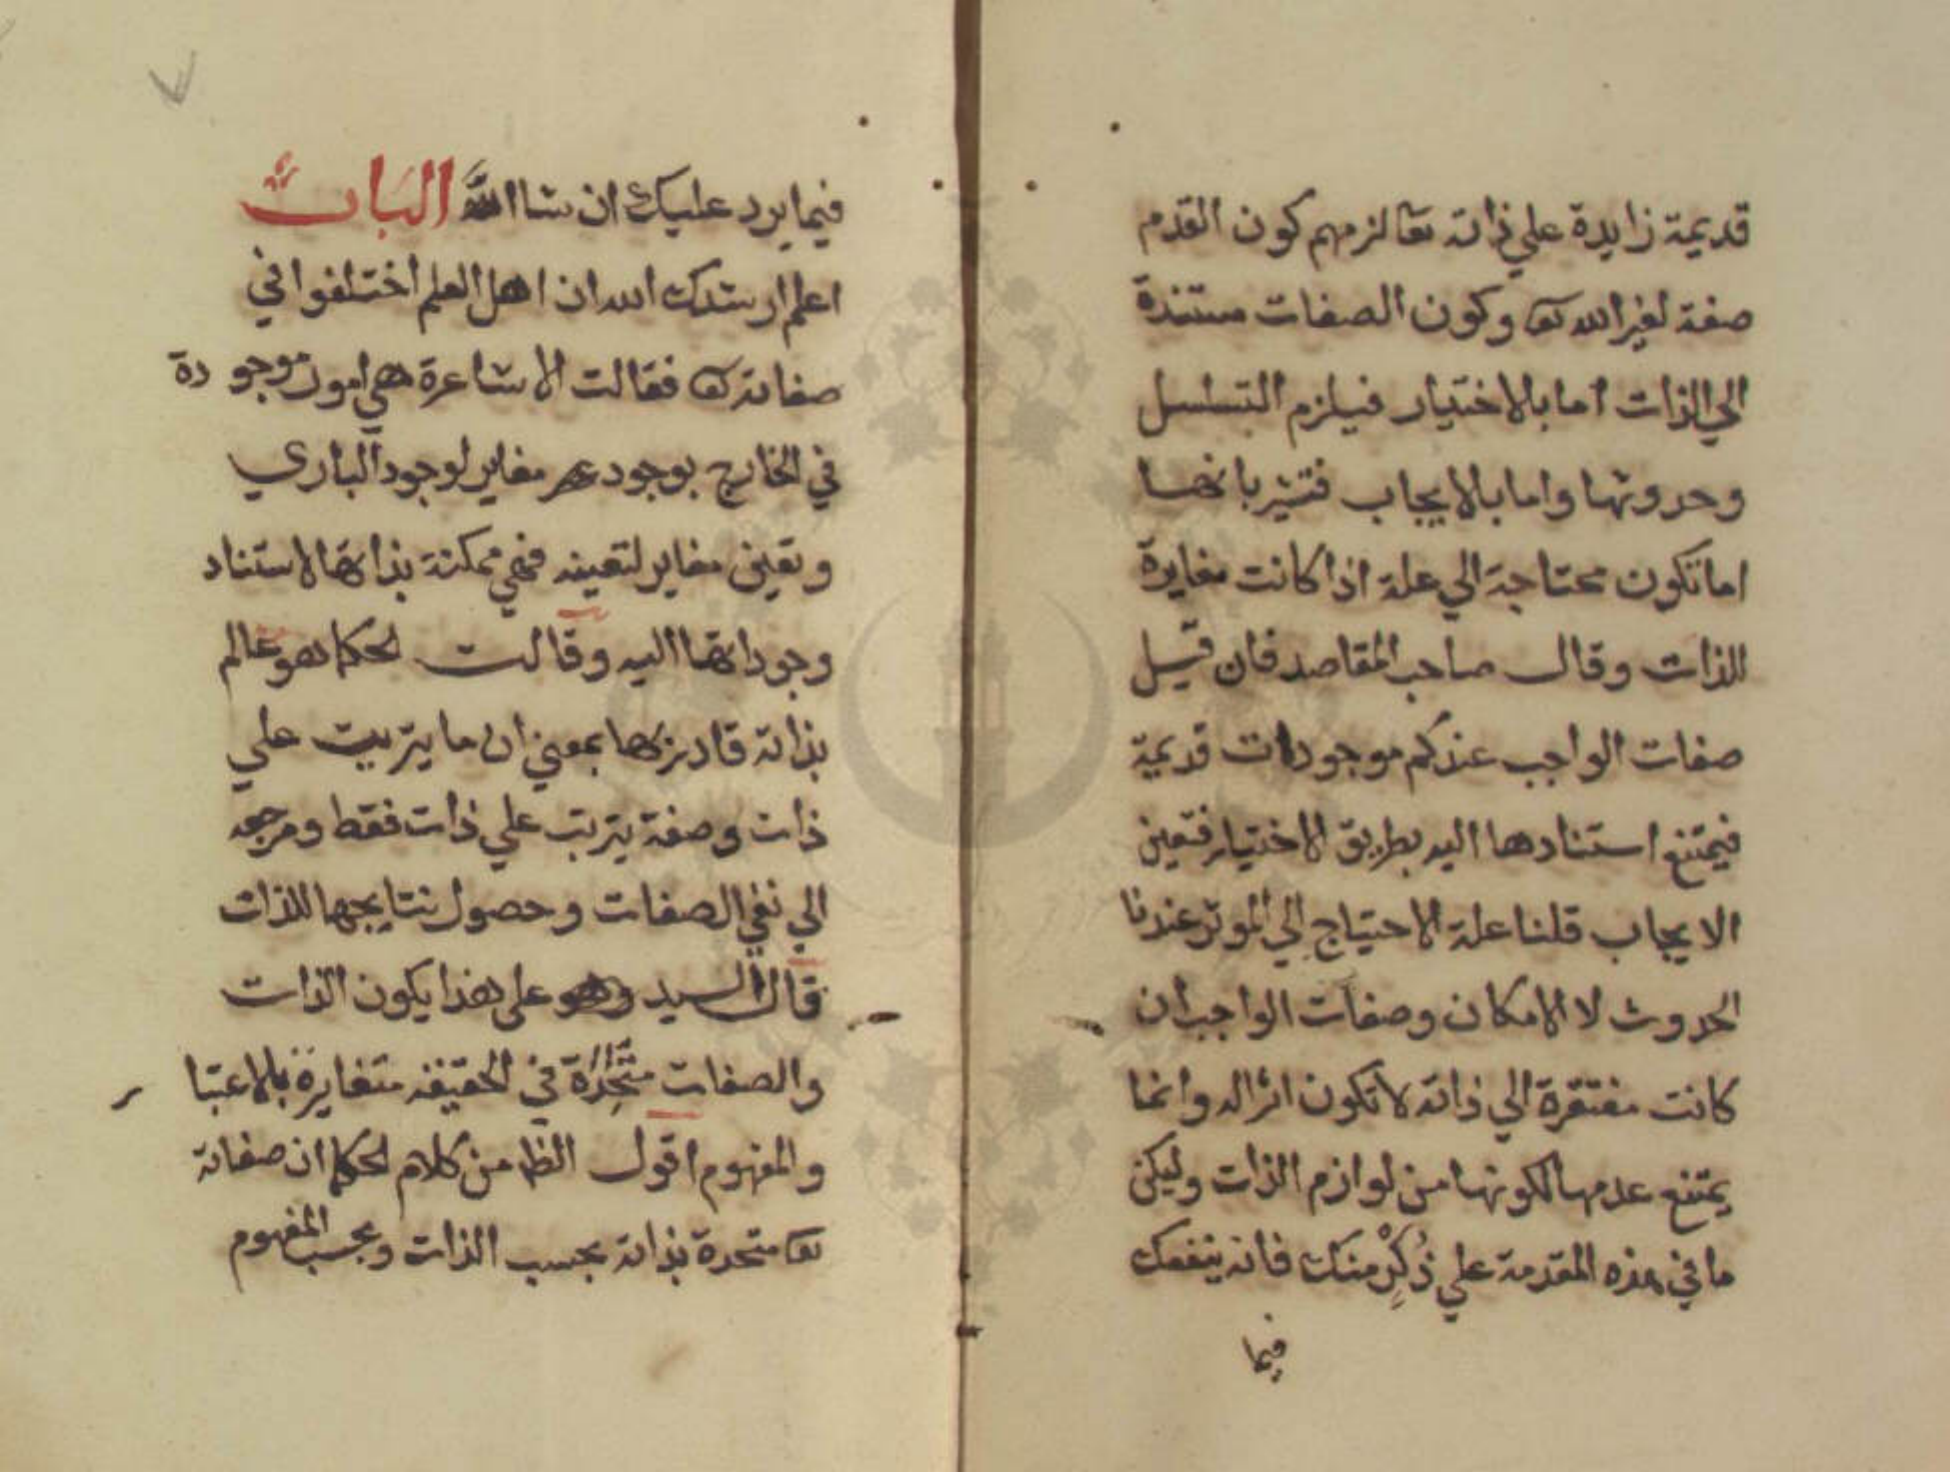 قديمة زايدة علي ذاته تعا لزمهم كون القدم
صفة لغير الله تعا وكون الصفات مستندة
الي الذات اما بالاختيار فيلزم التسلسل
وحدوثها واما بالايجاب فتشير بانها
اما تكون محتاجة الي علة اذا كانت مغايرة
للذات وقال صاحب المقاصد فان قيل
صفات الواجب عندكم موجودات قديمة
فيمتنع استنادها اليه بطريق الاختيار فتعين
الايجاب قلنا علة الاحتياج الي الموثر عندنا
الحدوث لا الامكان وصفات الواجب ان
كانت مفتقرة الي ذاته لا تكون اثرا له وانما
يمتنع عدمها لكونها من لوازم الذات وليكن
ما في هذه المقدمة علي ذُكْرٍ منك فانه ينفعك
فيما
فيما يرد عليك ان شا الله الباب
اعلم ارشدك الله ان اهل العلم اختلفوا في
صفاته تعا فقالت الاشاعرة هي امور موجودة
في الخارج بوجود مغاير لوجود الباري
وتعين مغاير لتعينه فهي ممكنة بذاتها لاستناد
وجوداتها اليه وقالت الحكما هو عالم
بذاته قادر بها بمعني ان ما يترتب علي
ذات وصفة يترتب علي ذات فقط ومرجعه
الي نفي الصفات وحصول نتايجها للذات
قال السيد وهو علي هذا يكون الذات
والصفات متحدة في الحقيقة متغايرة بالاعتبا
ر
والمفهوم اقول الظ من كلام الحكما ان صفاته
تعا متحدة بذاته بحسب الذات وبحسب المفهوم